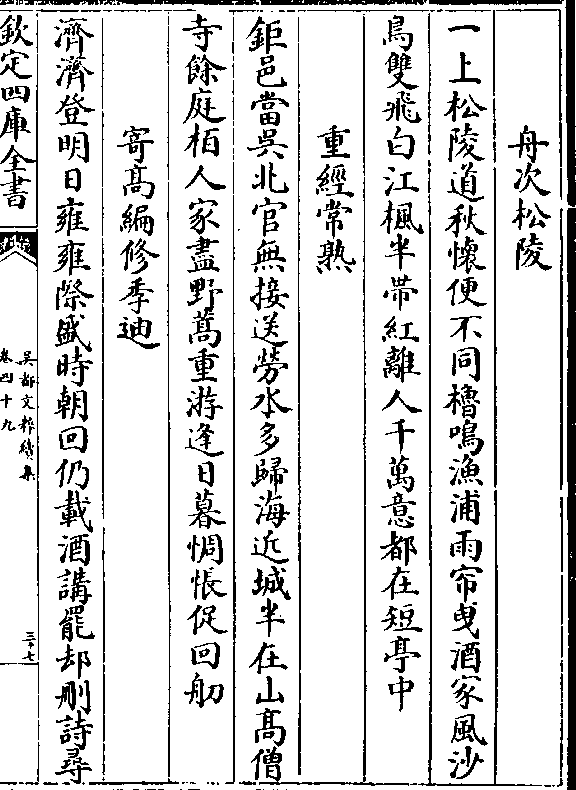 舟次松陵
一上松陵道秋懷便不同櫓鳴漁浦雨帘曳酒家風沙
鳥雙飛白江楓半帶紅離人千萬意都在短亭中
重經常熟
鉅邑當吳北官無接送勞水多歸海近城半在山高僧
寺餘庭栢人家盡野蒿重游逢日暮惆悵促回舠
寄髙編修季迪
濟濟登明日雍雍際盛時朝回仍載酒講罷却刪詩尋
欽定四庫全書
吳都文粹續集
卷四十九
三十七